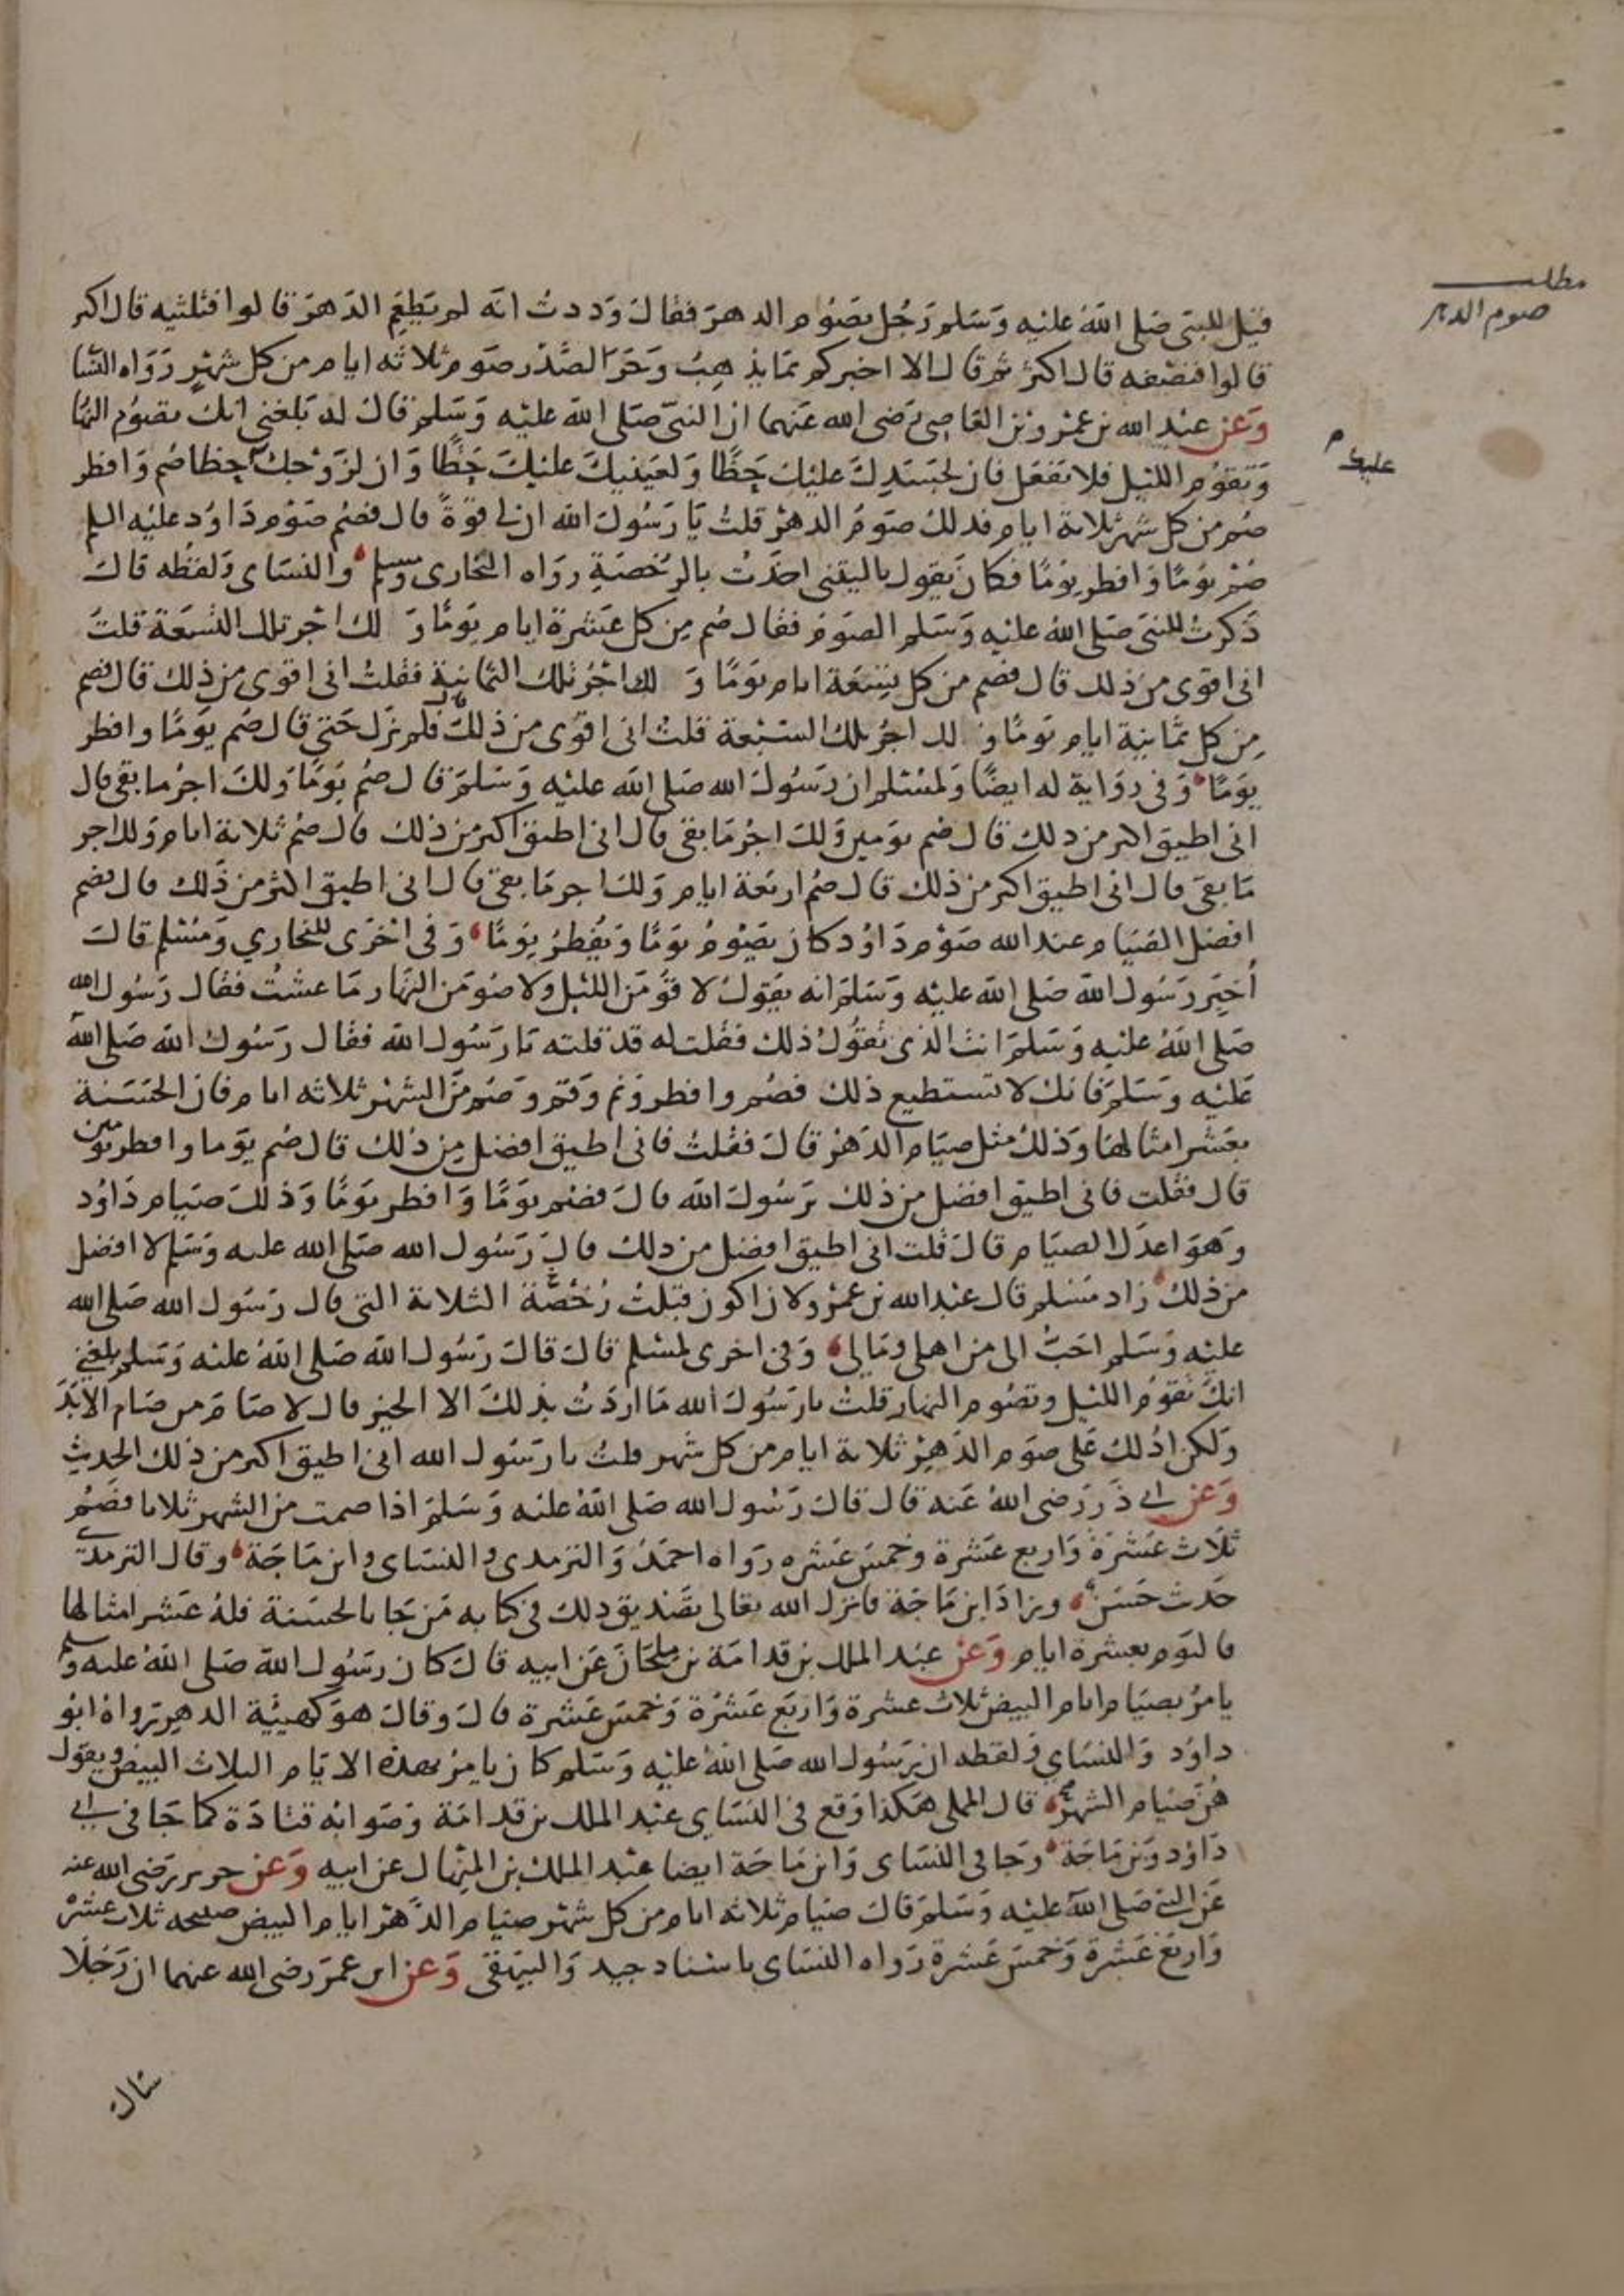 مطلب
صوم الدهر
قيل للنبى صَلى الله عليه وَسَلم رَجُل يصَوُم الدهرَ فقال وَددتُ انه لم يَطعَم الدَهرَ قالوا فثلثيه قال اكثر
قالوا فنصفه قال اكثرَ ثم قال الا اخبركم بمَا يذهِبُ وَحَرَ الصَّدْر صَوم ثلاثه ايام من كل شهْرٍ رَوَاه النسَا
وَعن عبْد الله بن عمْرو بْن العَاصِى رَضى الله عَنهما ان النبىّ صَلى الله عليْه وَسَلم قال له بَلغنى انك تصَوُم النهَا
وَتقوُم الليْل فلا تفعَل فان لجسَدِكَ عليْك حَظًّا وَلعَينيكَ عليْكَ حَظًّا وَان لزوْجك حظا صُم وَافطر
عليك م
صُم من كل شهر ثلاثة ايام فذلك صَومُ الدهْر قلتُ يَا رَسُولَ الله ان لى قوةً قال فصُم صَوْم دَاوُد عليْه السلم
صُمْ يوْمًا وَافطر يوْمًا فكان يَقول ياليتنى اخذتُ بالرُخصَةِ رواه البخارى ومسلم والنسَاى وَلفظه قال
ذكرتُ للنبىَ صَلى الله عليْه وَسَلم الصَومَ فقال صُم مِن كل عَشرة ايام يوَمًا وَلك اجْر تلك التسعَة قلتُ
انى اقوى من ذلك قال فصُم من كل تِسْعَة ايام يوَمًا وَلك اجْرُ تلك الثمانية فقلتُ انى اقوى من ذلك قال فصُم
مِن كل ثمَانية ايام يَومًا وَلك اجرُ تلك السَبْعة قلتُ انى اقوى من ذلك قال فلم يَزَل حَتى قال صُم يوَمًا وافطر
يوَمًا وَفى روَاية له ايضًا وَلمسْلم ان رَسُولَ الله صَلى الله عليْه وَسَلمَ قال صُم يَومًا وَلكَ اجرُ ما بقى قال
انى اطيق اكثر من ذلك قال صُم يوَمين وَلكَ اجْرُ مَا بقى قال انى اطيق اكثر من ذلك قال صُم ثلاثة ايام وَلك اجر
مَا بقىَ قال انى اطيق اكثر من ذلك قال صُم اربَعة ايام وَلك اجر مَا بقى قال انى اطيق اكثر من ذلك قال فصُم
افضل الصيَام عند الله صَوْم دَاوُد كان يصَوُمُ يوَمًا وَيُفطرُ يوَمًا وَفى اخْرَى للبخاري وَمُسْلم قال
أُخبِرَ رَسُول الله صَلى الله عليْه وَسَلمَ انه يقوَل لا قوُمَن الليْل ولا صُومَن النهَار مَا عشتُ فقال رَسُول الله
صَلى اللهُ عليْه وَسَلمَ انت الذى تقوُلُ ذلك فقلت له قد قلته يَا رَسُولَ الله فقال رَسُولُ الله صَلى الله
عَليْه وسَلمَ فانك لا تستطيع ذلك فصُم وافطر وَنم وَقم وَصُم مَن الشهْر ثلاثه ايام فان الحَسَنة
بعَشر امثالهَا وَذلك مثل صيَام الدَهْر قالَ فقلتُ فانى اطيق افضل مِن ذلك قال صُم يَوما وافطر يومين
قال فقلت فانى اطيق افضل من ذلك يرَسُولَ الله قالَ فصُم يومًا وَافطر يومًا وَذلكَ صيَام دَاوُد
وهوَ اعدَل الصيَام قالَ قلت انى اطيق افضل من ذلك قال رَسُول الله صَلى الله عليه وَسَلم لا افضل
من ذلك زاد مسْلم قال عبْد الله بن عمْرو لان اكون قبلتُ رُخصَّة الثلاثة التى قال رَسُول الله صَلى الله
عليْه وَسَلم احَبُّ الى من اهلى وَمَالى وَفى اخرى لمسْلم قال قالَ رَسُولُ الله صَلى اللهُ عليْه وَسَلم بلغنى
انكَ تقومُ الليْل وتصُوم النهار قلتُ يا رَسُولَ الله مَا اردَتُ بذلكَ الا الخير قال لا صَامَ من صَام الابَدَ
وَلكن ادُلك عَلى صَوم الدَهْر ثلاثة ايام من كل شهر قلتُ يا رَسُول الله انى اطيق اكثر من ذلك الحديث
وَعن ابى ذَر رَضى اللهُ عَنه قال قال رَسُول الله صَلى اللهُ عليْه وَسَلمَ اذا صمت من الشهر ثلاثا فصُم
ثلاث عَشرَةَ وَاربع عَشرة وخمسَ عَشره رَواه احمَدُ وَالترمدى والنسَاى وابن مَاجَة وقال الترمدى
حَديث حَسَن وزادَ ابن مَاجَة فانزل الله تعالى تصْديق ذلك فى كتابه مَن جَا بالحسَنة فلهُ عَشر امثالها
فاليَوم بعشرة ايام وَعن عبْد الملك بن قدامَة بن ملحَانَ عَن ابيه قالَ كان رسَوُل الله صَلى اللهُ عليه وسلم
يامرُ بصيَام ايام البيض ثلاث عشرة وَاربَع عَشرَة وَخمسَ عَشرة قالَ وقال هوَ كهيئية الدهِر رَواهُ ابوُ
داوُد وَالنسَاي وَلفظه ان رسُول الله صَلى اللهُ عليْه وَسَلم كان يامرُ بهذه الايَام الثلاث البيض ويقول
هُنَّ صيَام الشهْر قال المملى هَكذا وَقع فى النسَاى عبْد الملك بن قدامَة وَصَوابُه قتادَة كما جَا فى ابى
دَاوُد وَبن مَاجَة وَجَا فى النسَاى وَابن مَاجَة ايضا عبْد الملك بن المنهال عن ابيه وَعن جرير رَضى الله عنه
عَن النبى صَلى اللهُ عليْه وَسَلمَ قال صيَام ثلاثه ايام من كل شهْر صيَام الدَهْر ايام البيض صبيحه ثلاث عشرْ
وَاربَعَ عَشرة وَخمسَ عَشرة رَوَاه النسَاى باسْناد جيد وَالبيَهقى وَعن ابن عمَرَ رضى الله عنهما ان رَجَلًا
سَال